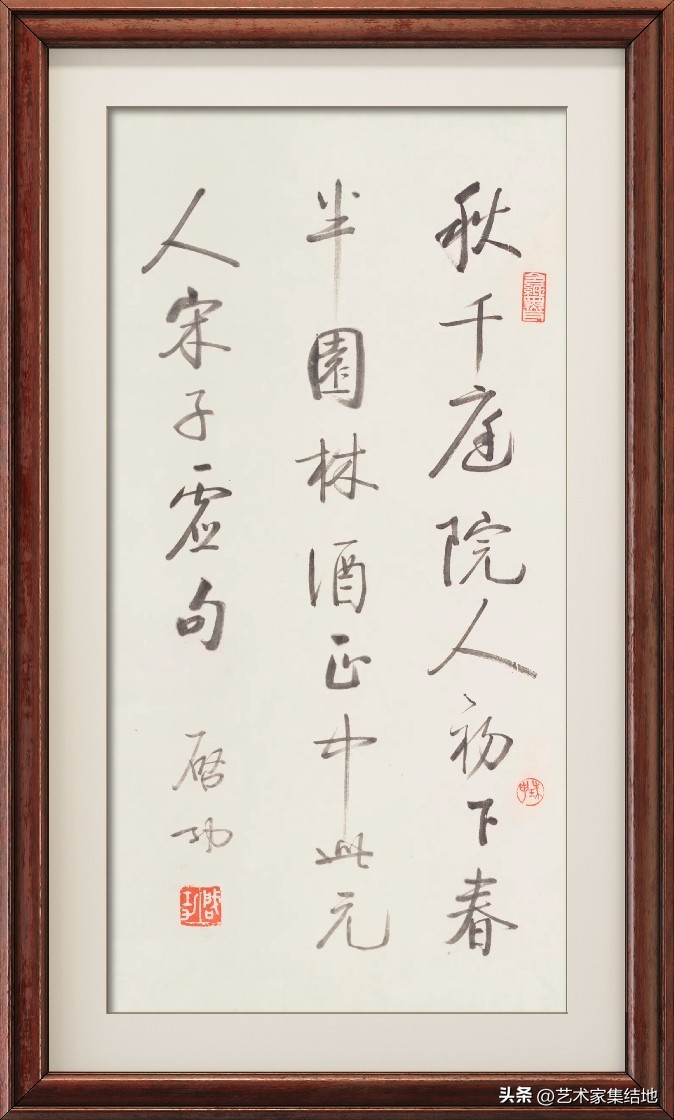 秋千庭院人初下春
半園林酒正中此元
人宋子虚句
啓功
头条 @艺术家集结地